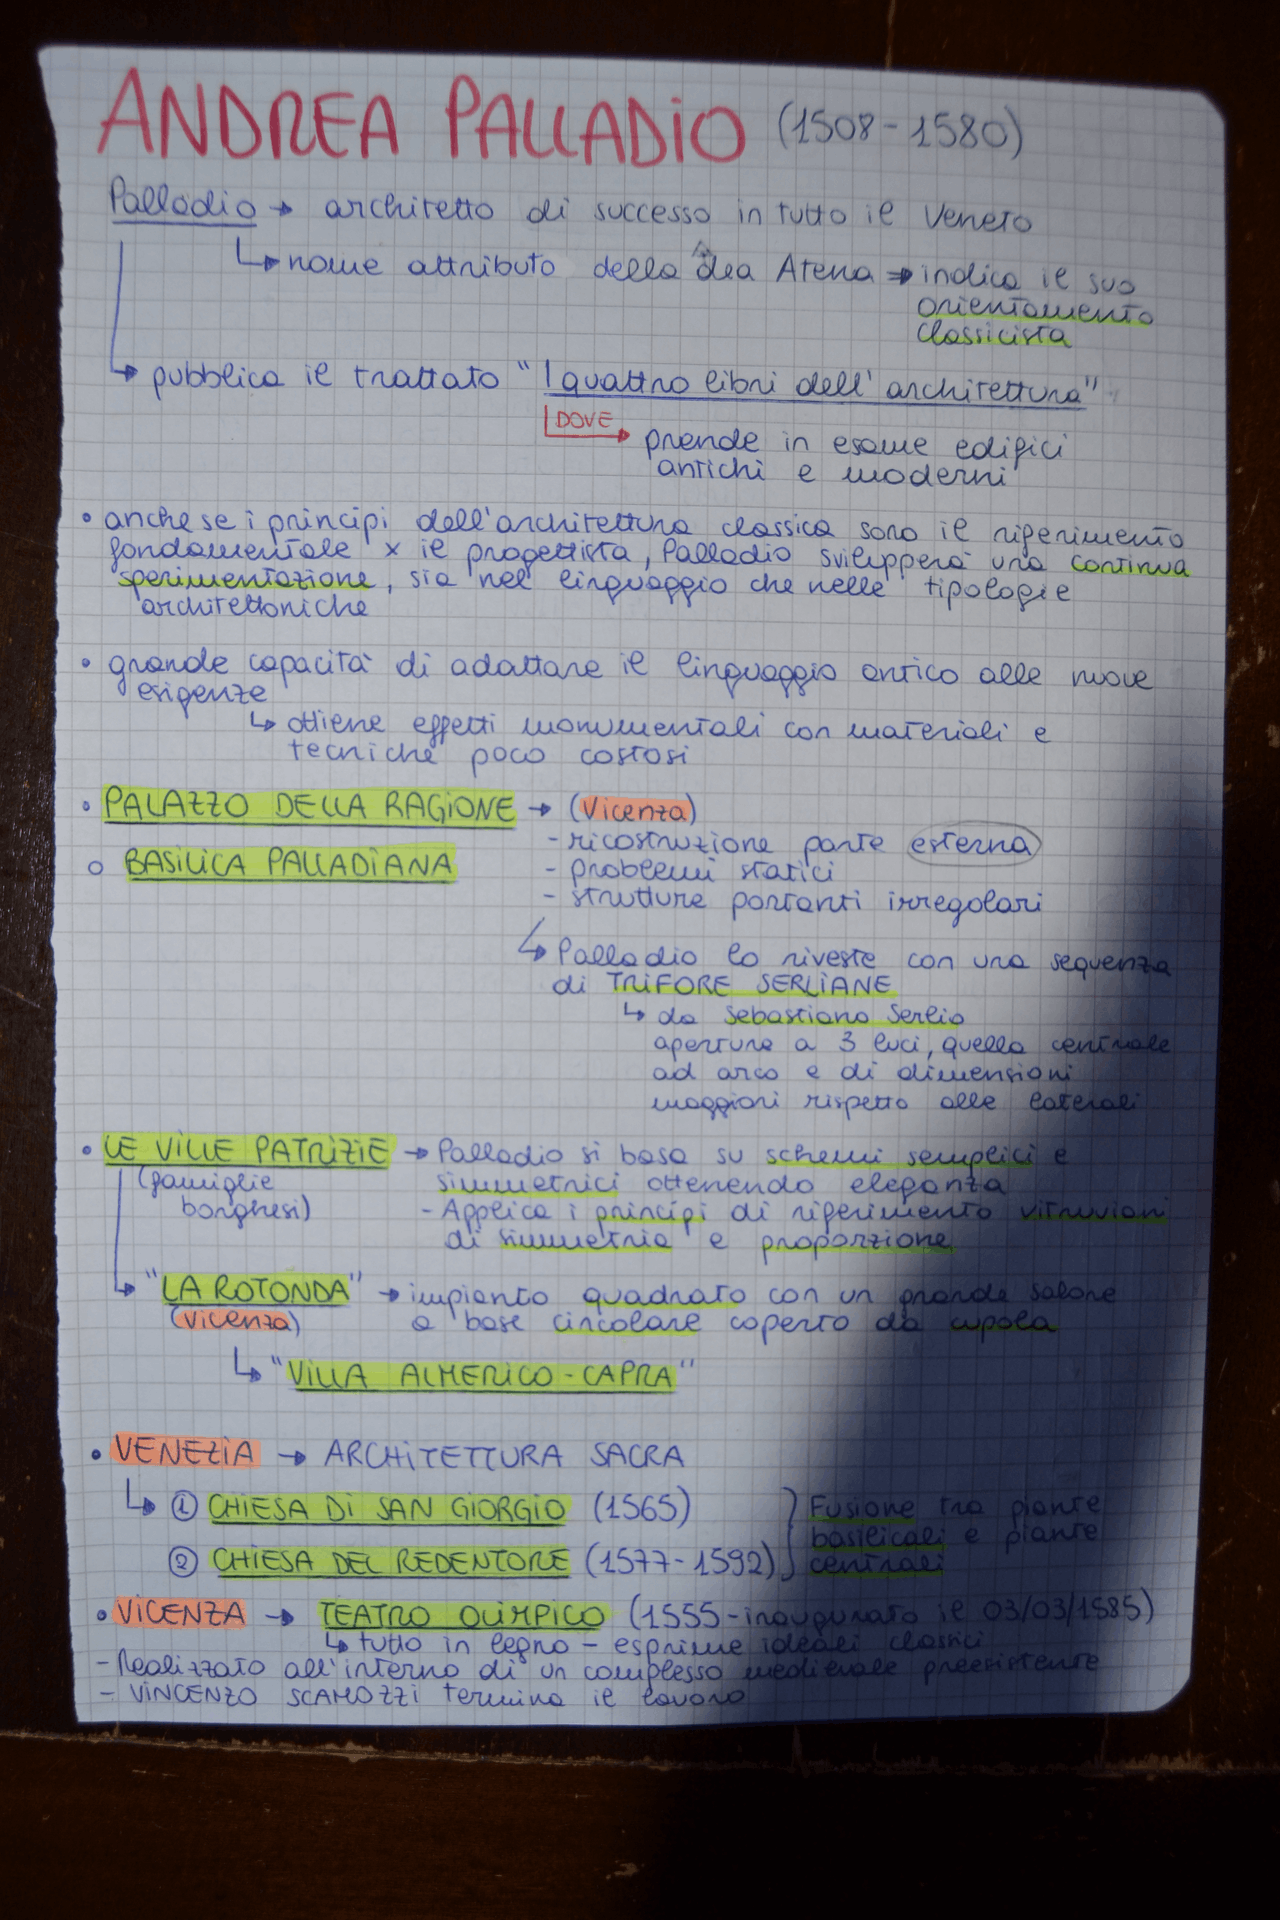 ANDREA PALLADIO (1508-1580)
Palladio → architetto di successo in tutto il Veneto
↳ nome attributo della dea Atena → indica il suo
orientamento
classicista
↳ pubblica il trattato "I quattro libri dell'architettura"
DOVE → prende in esame edifici
antichi e moderni
• anche se i principi dell'architettura classica sono il riferimento
fondamentale x il progettista, Palladio svilupperà una continua
sperimentazione, sia nel linguaggio che nelle tipologie
architettoniche
• grande capacità di adattare il linguaggio antico alle nuove
esigenze
↳ ottiene effetti monumentali con materiali e
tecniche poco costosi
• PALAZZO DELLA RAGIONE → (Vicenza)
- ricostruzione parte esterna
o BASILICA PALLADIANA
- problemi statici
- strutture portanti irregolari
↳ Palladio lo riveste con una sequenza
di TRIFORE SERLIANE
↳ da Sebastiano Serlio
apertura a 3 luci, quella centrale
ad arco e di dimensioni
maggiori rispetto alle laterali
• LE VILLE PATRIZIE → Palladio si basa su schemi semplici e
(famiglie simmetrici ottenendo eleganza
borghesi) - Applica i principi di riferimento vitruviani
di simmetria e proporzione
↳ "LA ROTONDA" → impianto quadrato con un grande salone
(Vicenza) a base circolare coperto da cupola
↳ "VILLA ALMERICO-CAPRA"
• VENEZIA → ARCHITETTURA SACRA
↳ ① CHIESA DI SAN GIORGIO (1565) } Fusione tra piante
basilicali e piante
② CHIESA DEL REDENTORE (1577-1592) centrali
• VICENZA → TEATRO OLIMPICO (1555-inaugurato il 03/03/1585)
↳ tutto in legno - esprime ideali classici
- Realizzato all'interno di un complesso medievale preesistente
- VINCENZO SCAMOZZI termina il lavoro